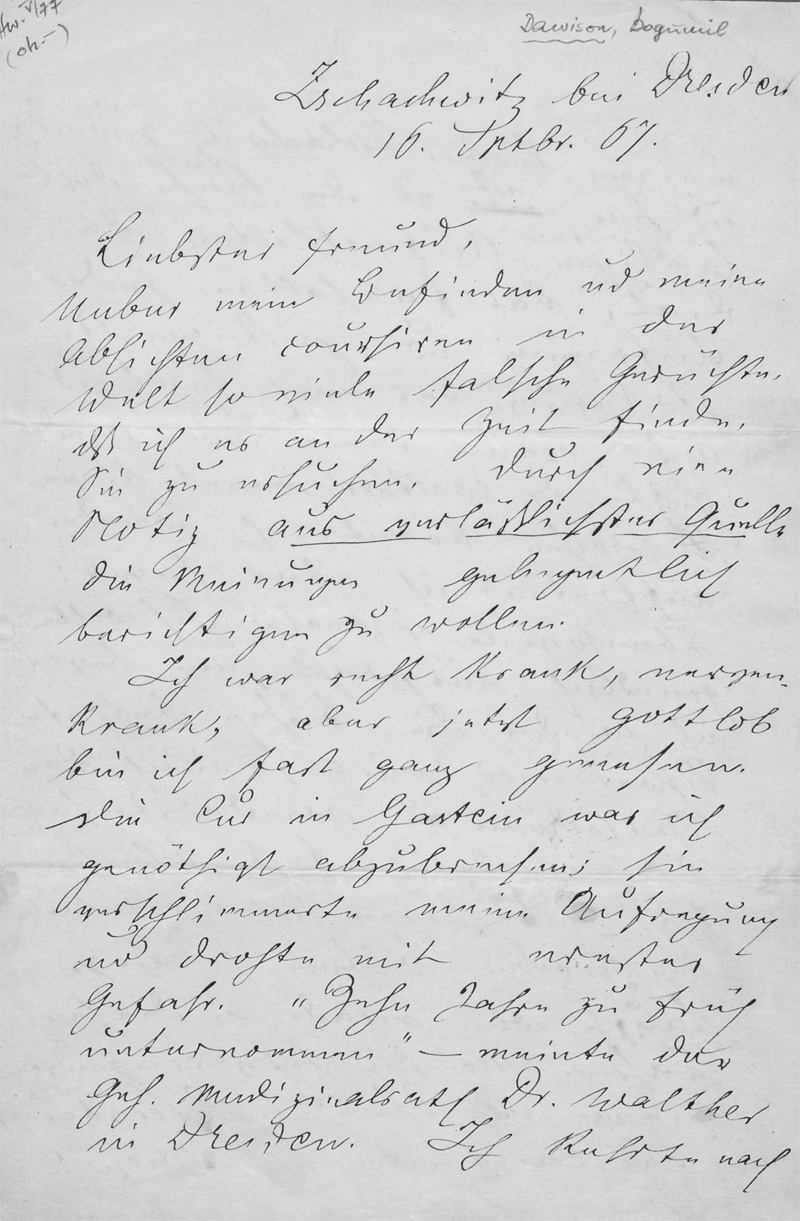 Dawison, Bogumil
Zschachwitz bei Dresden
16. Sptbr. 67.
Liebster Freund,
Ueber mein Befinden ud meine
Absichten coursiren in der
Welt so viele falsche Gerüchte,
dß ich es an der Zeit finde,
Sie zu ersuchen, durch eine
Notiz aus verläßlichster Quelle
die Meinungen gelegentlich
berichtigen zu wollen.
Ich war recht krank, nerven-
krank, aber jetzt gottlob
bin ich fast ganz genesen.
Die Cur in Gastein war ich
genöthigt abzubrechen; sie
verschlimmerte meine Aufregung
und drohte mit ernster
Gefahr. "Zehn Jahre zu früh
unternommen" — meinte der
Geh. Medizinalrath Dr. Walther
in Dresden. Ich kehrte nach